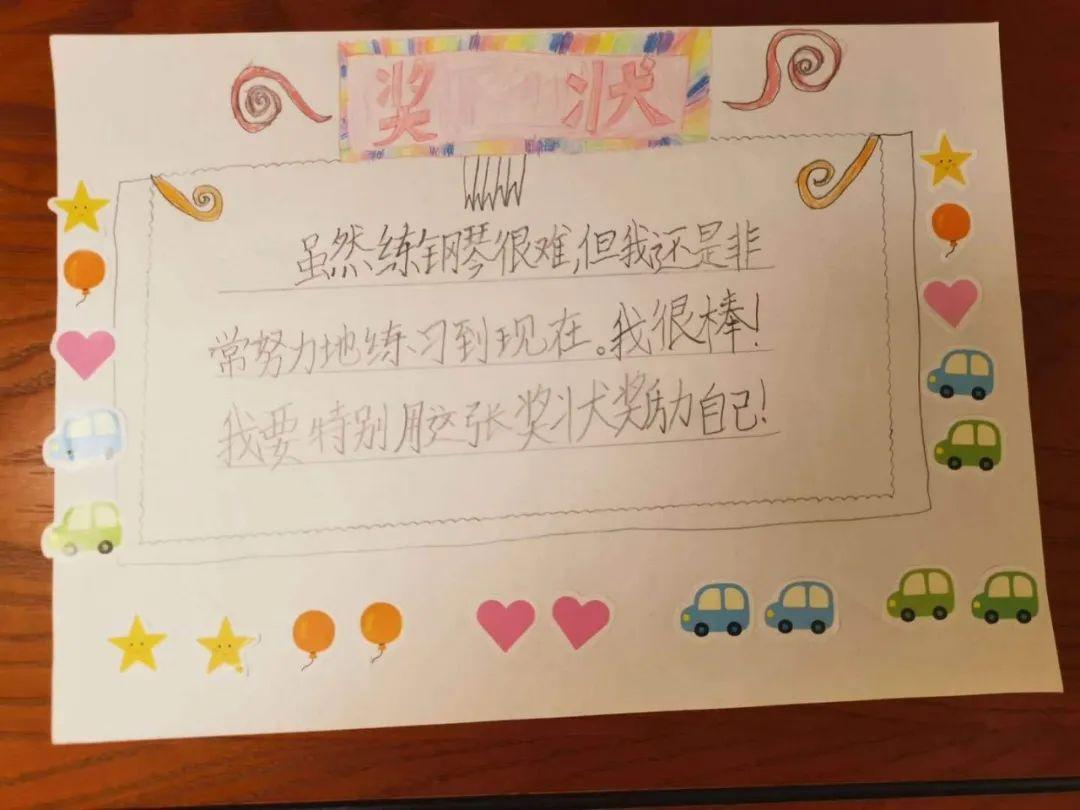 奖状
虽然练钢琴很难,但我还是非
常努力地练习到现在。我很棒!
我要特别用这张奖状奖励自己!